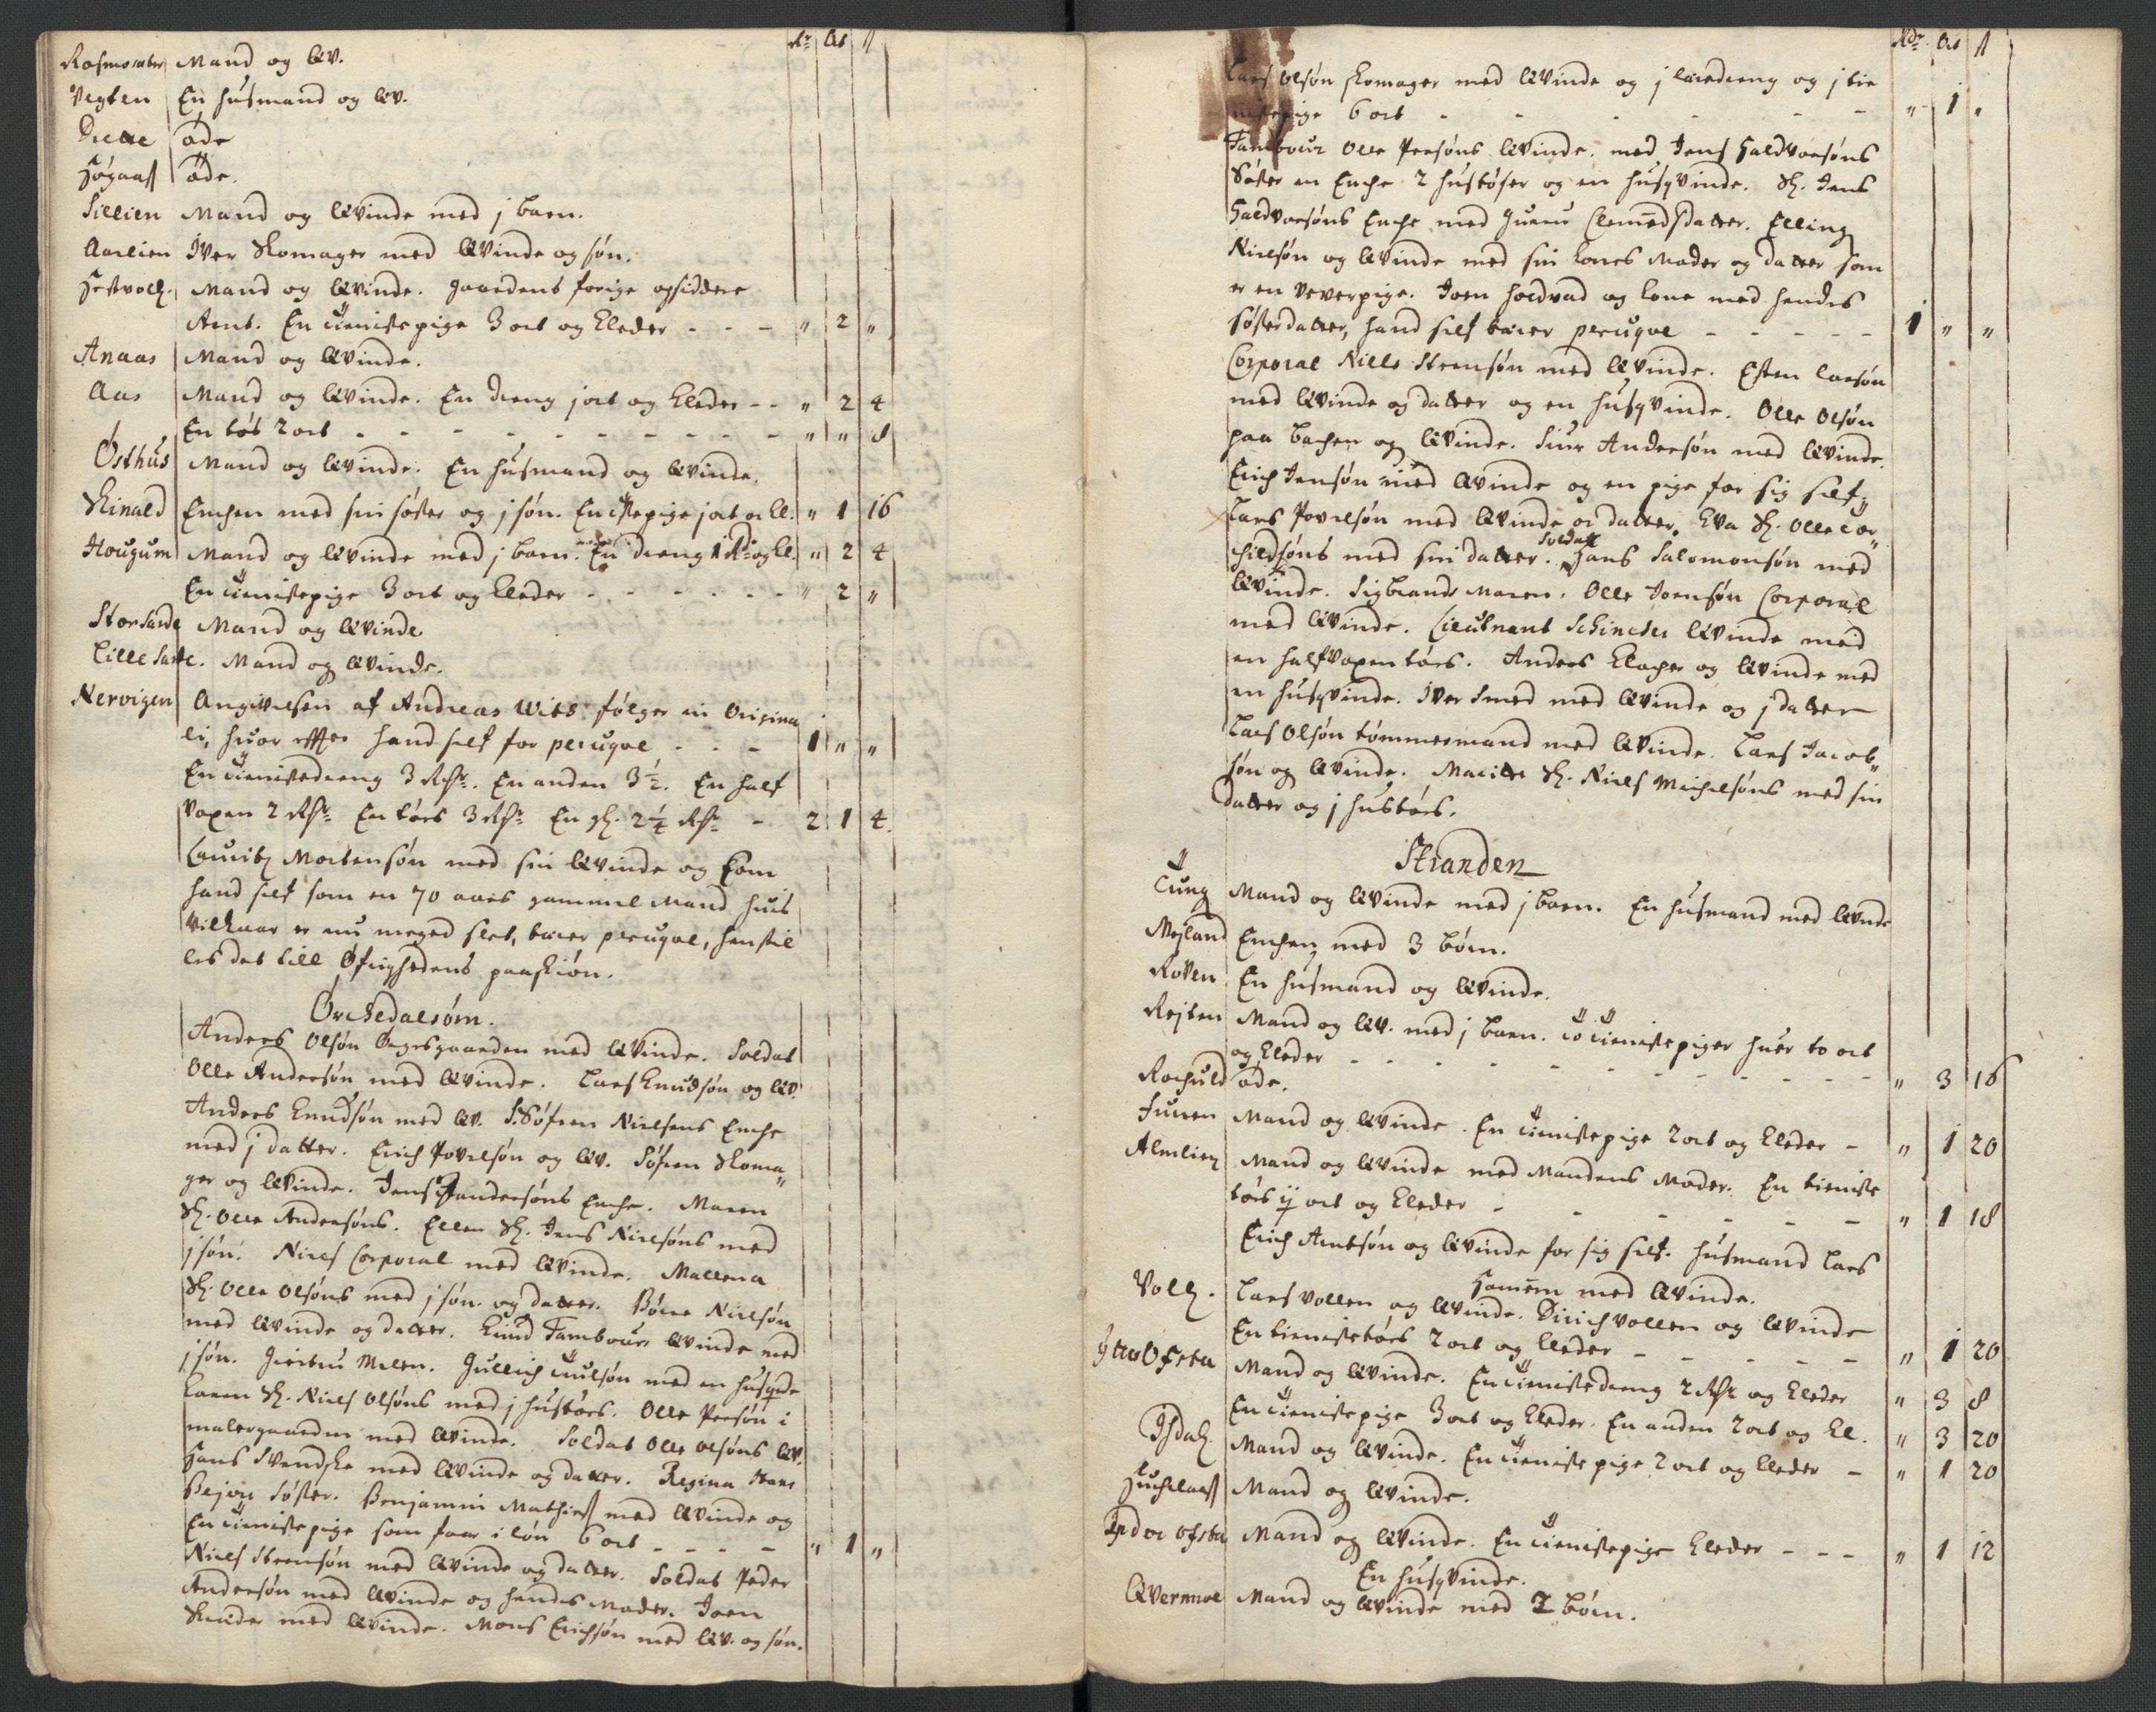 Rr Ort ß
Rosmoeter Mand og qv.
Vegten En husmand og qv.
øde
Høgaaß øde.
Lillien Mand og qvinde med j barn.
Aarlien Iver Skomager med qvinde og søn.
Hestvoll. Mand og qvinde. Gaardens forige opsiddere
Arnt. En tienistepige 3 ort og kleder - - - " 2 "
Anaas Mand og qvinde.
Aas Mand og qvinde. En dreng j ort og kleder - - " 2 4
En tøs 2 ort - - - - - - - - " " 8
Østhus Mand og qvinde. En husmand og qvinde.
Skinald Enchen med sin søster og j søn. En tistepige j ort og kl. " 1 16
Hougum Mand og qvinde med j barn. En dreng 1 Rdr og kl. " 2 4
En tienistepige 3 ort og kleder - - - - - - " 2 "
Storsande Mand og qvinde
Lille sande. Mand og qvinde.
Nervigen Angivelsen af Andreas Wits følger in Origina
li, huor effter hand self for peruqve - - - 1 " "
En tienistedreng 3 Rdr. En anden 3½. En half
voxen 2 Rdr En tøes 3 Rdr En dh. 2¼ Rdr - 2 1 4.
Lauritz Mortensøn med sin qvinde og som
hand self som en 70 aars gammel Mand huis
vilkaar er nu meget slet, bærer peruqve, henstil
les det till Øfrighedens paaskiøn.
Orchedalsørn.
Anders Olsøn Engesgaarden med qvinde. Soldat
Olle Andersøn med qvinde. Lars Knudsøn og qv.
Anders Knudsøn med qv. S. Søfren Nielsens Enche
med j datter. Erich Povelsøn og qv. Søfren Skoma"
ger og qvinde. Jens Andersøns Enche. Maren
Sl. Olle Andersøns. Ellen Sl. Jens Nielsøns med
j søn. Niels Corporal med qvinde. Mallena
Sl. Olle Olsøns med j søn og datter. Børre Nielsøn
med qvinde og datter. Knud Tambour qvinde med
j søn. Giertru Malen. Gullich Juulsøn med en husqvinde
Karen Sl. Niels Olsøns med j hustøes. Olle Peersøn i
malergaarden med qvinde. Soldat Olle Olsøns qv.
Hans Svendske med qvinde og datter. Regina Hans
Bejers søster. Benjamin Mathieß med qvinde og
En tienistepige som faar i løn 6 ort - - - - " 1 "
Niels Steensøn med qvinde og datter. Soldat Peder
Andersøn med qvinde og hendis Moder. Joen
Skreder med qvinde. Mons Erichsøn med qv. og søn.
Rdr Ort ß
Lars Olsøn skomager med qvinde og j læredreng og j tie
nistepige 6 ort - - - - - " 1 "
Tambour Olle Peersøns qvinde, med Jens Haldvorsøns
Søster en Enche 2 hustøser og en husqvinde. Sl. Jens
Haldvorsøns Enche med Guru Clemedsdatter. Elling
Nielsøn og qvinde med sin kones Moder og datter som
er en Veverpige. Joen Hordvad og kone med hendis
søsterdatter, hand self bærer peruqve - - - - - 1 " "
Corporal Nills Steensøn med qvinde. Esten Larsøn
med qvinde og datter og en husqvinde. Olle Olsøn
paa bachen og qvinde. Siur Andersøn med qvinde.
Erich Jensøn med qvinde og en pige for sig self;
Lars Povelsøn med qvinde og datter. Eva Sl. Olle Tor"
childsøns med sin datter. Soldat Hans Salomonsøn med
qvinde. Sigbrands Maren. Olle Joensøn Corporal
med qvinde. Lieutnant Schinchel qvinde med
en halfvoxen tøes. Anders Klocher og qvinde med
en husqvinde. Iver Smed med qvinde og j datter
Lars Olsøn tømmermand med qvinde. Lars Jacob"
søn og qvinde. Marite Sl. Niels Michelsøns med sin
datter og j hustøes.
Stranden
Tung Mand og qvinde med j barn. En husmand med qvinde
Mejland Enchen med 3 børn.
Roven En husmand og qvinde.
Rejten Mand og qv. med j barn. To tienistepiger huer to ort
og kleder - - - - - - - - - - " 3 16
Rochuld øde.
Furen Mand og qvinde. En tienistepige 2 ort og kleder - " 1 20
Almlien Mand og qvinde med Mandens Moder. En tieniste
tøes ij ort og kleder - - - - - - " 1 18
Erich Arntsøn og qvinde for sig self. Husmand Lars
Hammer med qvinde.
Voll. Lars Vollen og qvinde. Dirich Vollen og qvinde
En tienistetøes 2 ort og kleder - - - - - " 1 20
Ytre Ofsta Mand og qvinde. En tienistedreng 2 Rdr og kleder " 3 8
En tienistepige 3 ort og kleder. En anden 2 ort og kl. " 3 20
Isdal. Mand og qvinde. En tieniste pige 2 ort og kleder - " 1 20
Huchelaaß Mand og qvinde.
Indre Ofsta Mand og qvinde. En tienistepige kleder - - - " 1 12
En husqvinde.
Qvernmoe Mand og qvinde med 2 børn.